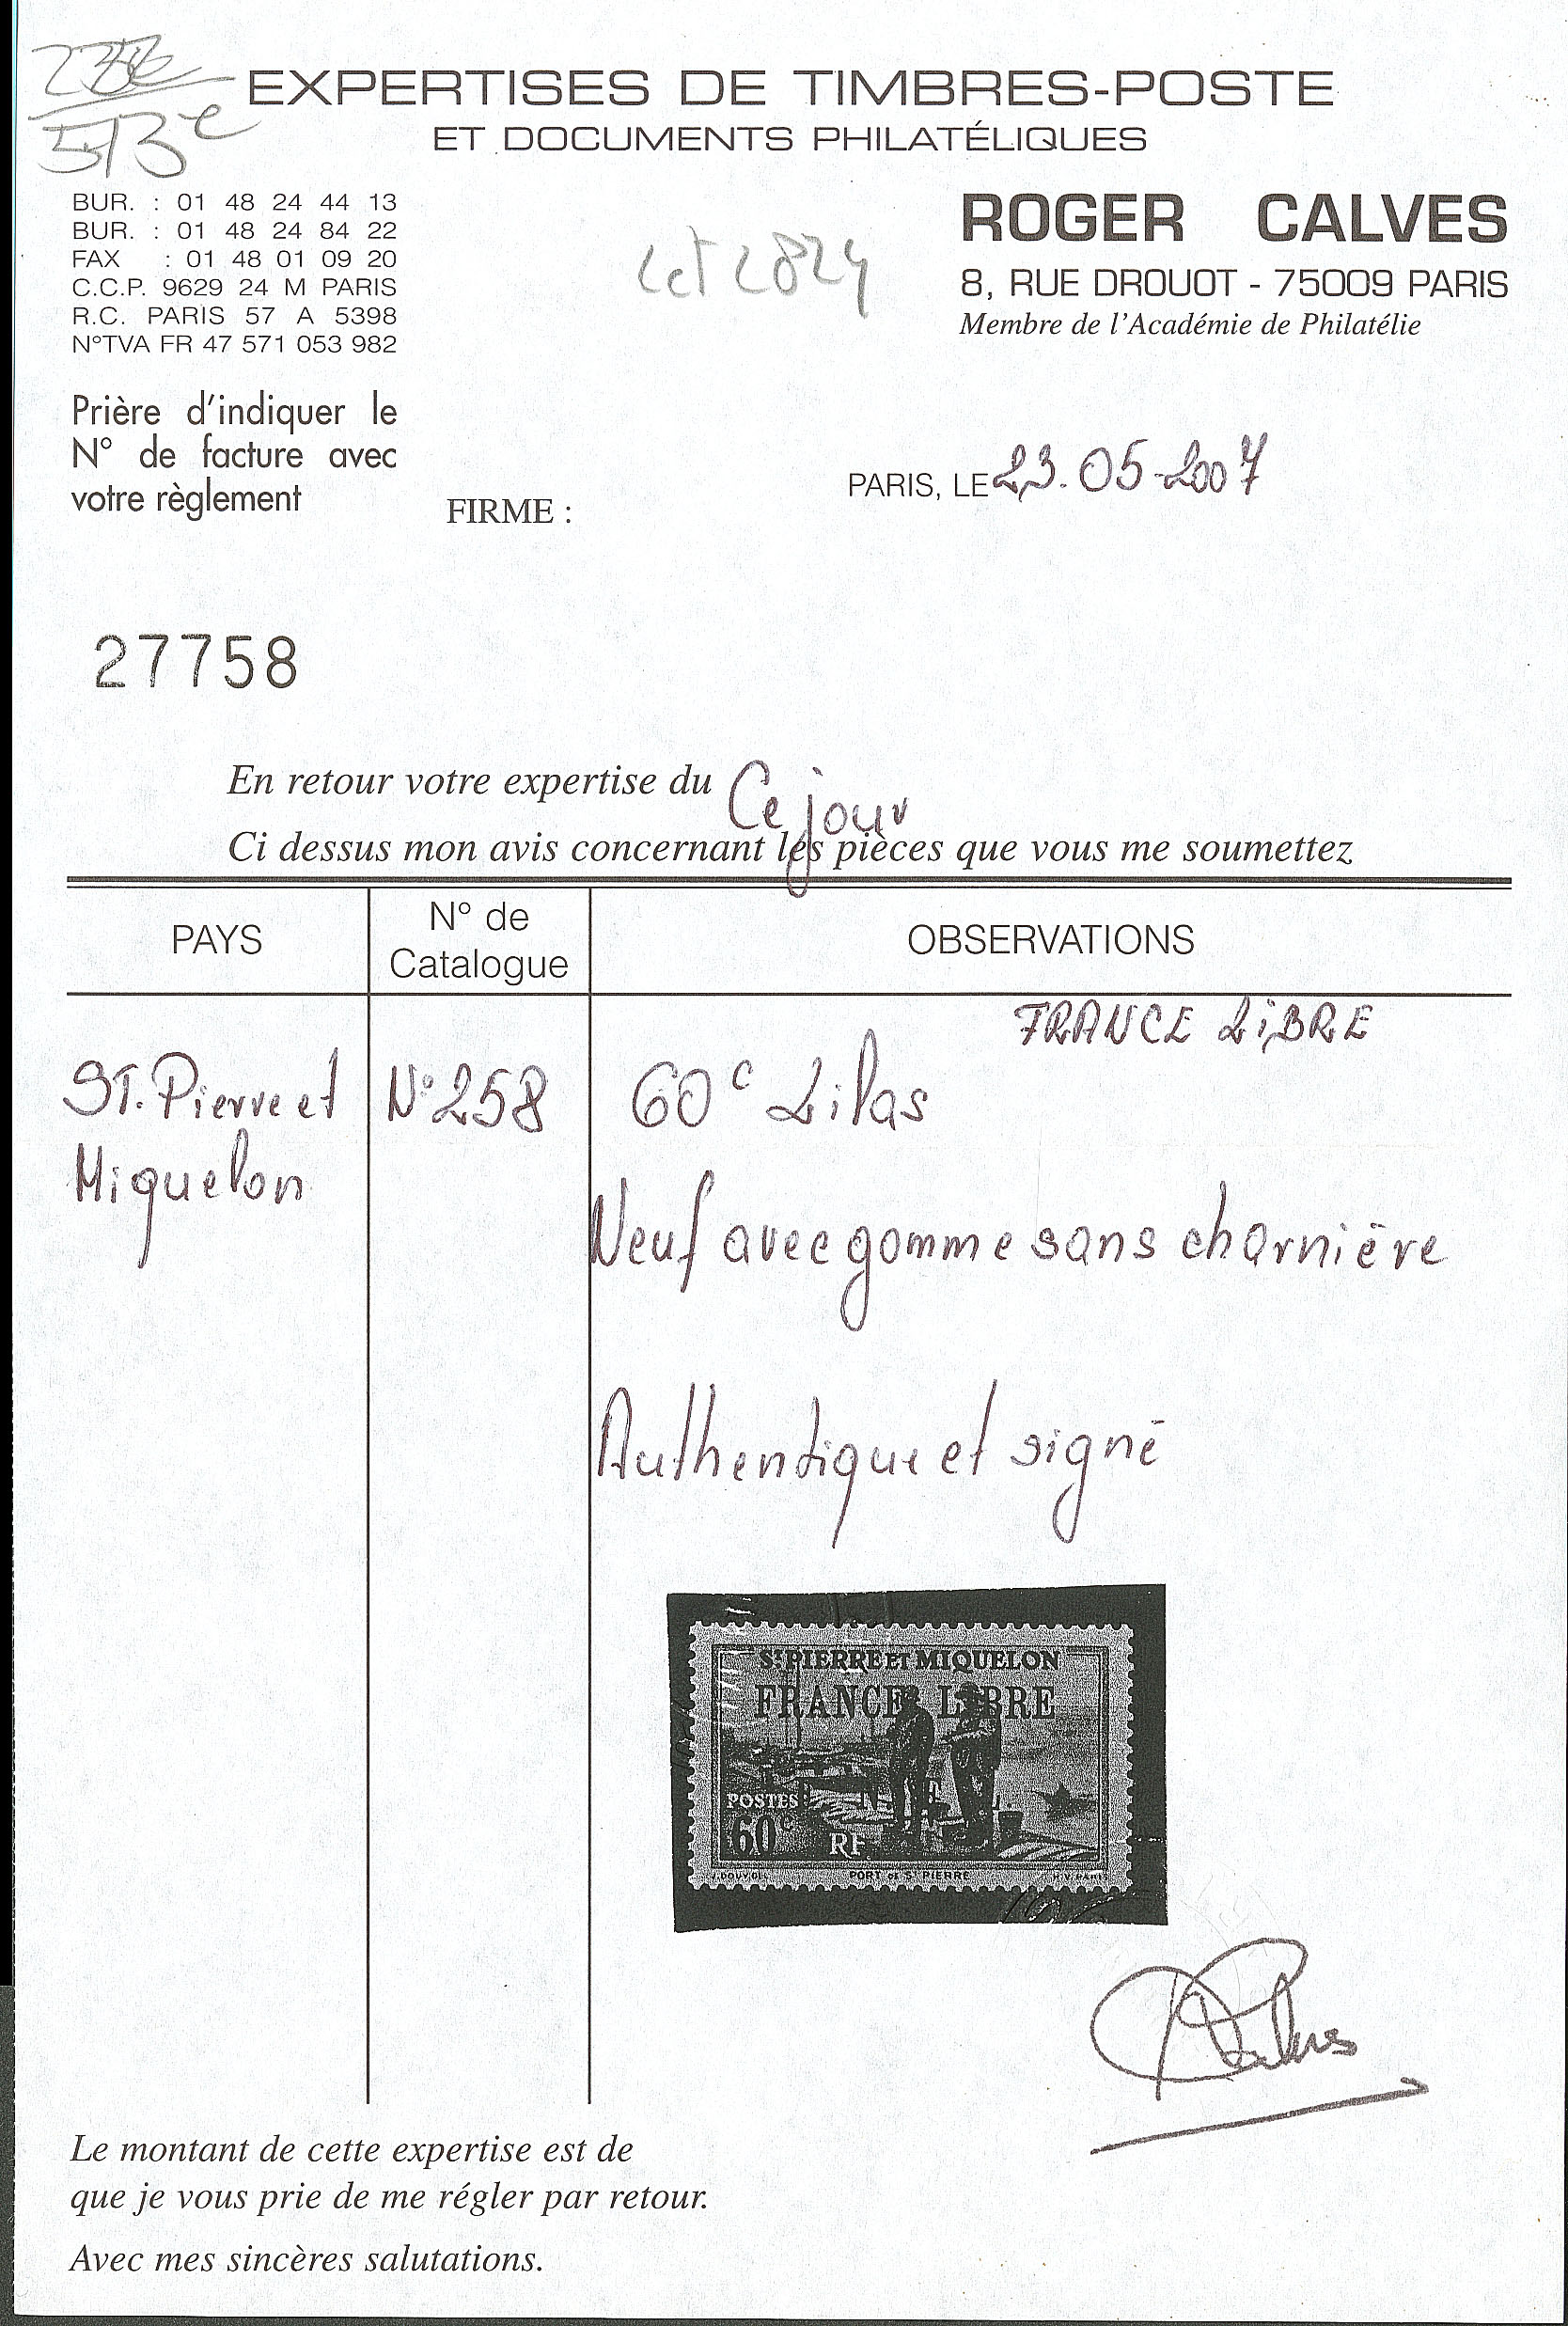 EXPERTISES DE TIMBRES-POSTE
ET DOCUMENTS PHILATÉLIQUES
BUR. : 01 48 24 44 13
BUR. : 01 48 24 84 22
FAX : 01 48 01 09 20
C.C.P. 9629 24 M PARIS
R.C. PARIS 57 A 5398
N°TVA FR 47 571 053 982
ROGER CALVES
8, RUE DROUOT - 75009 PARIS
Membre de l'Académie de Philatélie
Prière d'indiquer le
N° de facture avec
votre règlement
FIRME :
PARIS, LE 23.05-2007
27758
En retour votre expertise du Ce jour
Ci dessus mon avis concernant les pièces que vous me soumettez
PAYS
N° de
Catalogue
OBSERVATIONS
FRANCE LIBRE
ST. Pierre et
Miquelon
N°258
60c Lilas
Neuf avec gomme sans charnière
Authentique et signé
ST PIERRE ET MIQUELON
FRANCE LIBRE
POSTES
60c RF
PORT de ST PIERRE
Le montant de cette expertise est de
que je vous prie de me régler par retour.
Avec mes sincères salutations.